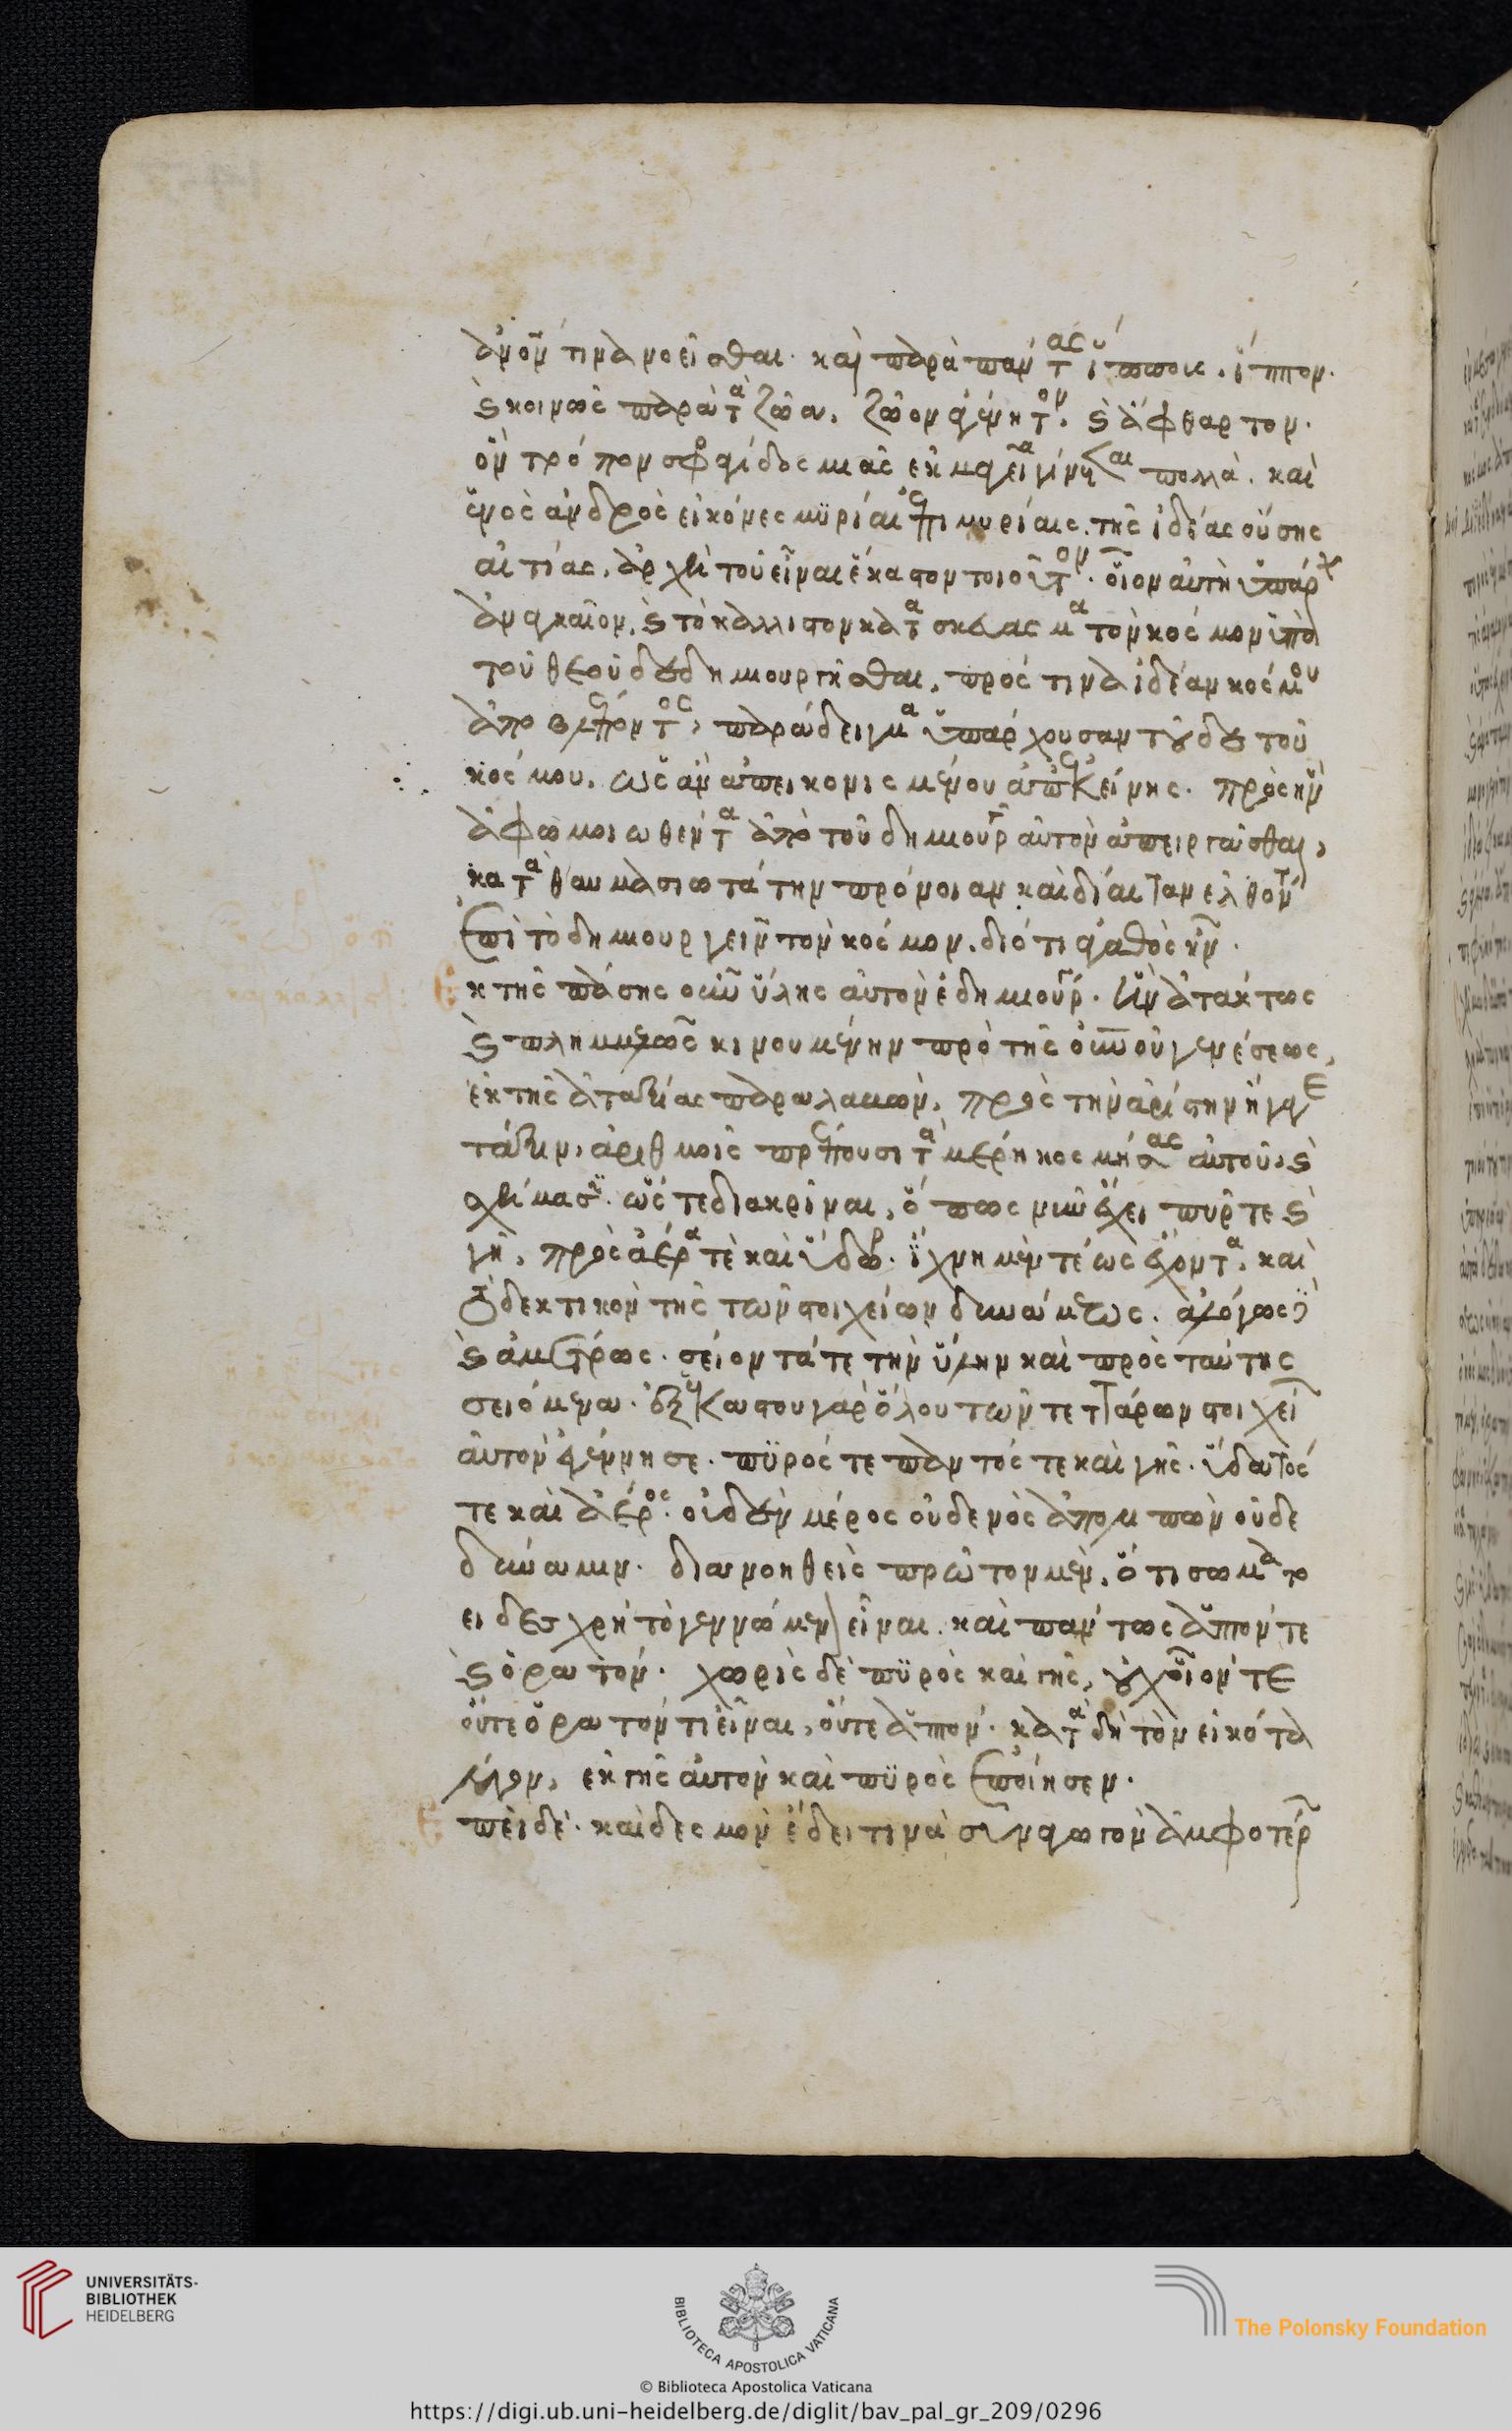 ἄνον τινὰ νοεῖσθαι· καὶ παρὰ πάντας ἵππους, ἵππον.
καὶ κοινῶς παρὰ τὰ ζῶα, ζῶον ἀγένητον, καὶ ἄφθαρτον.
ὃν τρόπον σφραγίδος μιᾶς ἐκμαγεῖα γίνεται πολλὰ. καὶ
ἑνὸς ἀνδρὸς εἰκόνες μϋρίαι ἐπὶ μυρίαις. τῆς ἰδέας οὔσης
αἰτίας, ἀρχὴ τοῦ εἶναι ἕκαστον τοιοῦτον. οἷον αὐτὴ ὑπάρχ
ἀναγκαῖον, καὶ τὸ κάλλιστον κατασκεύασμα τὸν κόσμον ὑπὸ
τοῦ θεοῦ δεδημιουργῆσθαι, πρός τινα ἰδέαν κόσμου
ἀποβλέποντος, παράδειγμα ὑπάρχουσαν τοῦδε τοῦ
κόσμου, ὡς ἂν ἀπεικονισμένου ἀπ' ἐκείνης. πρὸς ἣν
ἀφωμοιωθέντα ἀπὸ τοῦ δημιουργ αὐτὸν ἀπειργάσθαι,
κατὰ θαυμασιωτάτην πρόνοιαν καὶ δίαιταν ἐλθοντ
ἐπὶ τὸ δημιουργεῖν τὸν κόσμον. διότι ἀγαθὸς ἦν.
ἐκ τῆς πάσης οὖν ὕλης αὐτὸν ἐδημιούργ. ἣν ἀτάκτως
καὶ πλημμελῶς κινουμένην πρὸ τῆς οὐνοῦ γενέσεως,
ἐκ τῆς ἀταξίας παραλαβὼν, πρὸς τὴν ἀρίστην ἤγαγε
τάξιν, ἀριθμοῖς πρέπουσι τὰ μέρη κοσμήσας αὐτοῦ, καὶ
σχήμασι. ὥς τε διακρῖναι, ὅπως νῦν ἔχει πῦρ τε καὶ
γῆ, πρὸς ἀέρα τὲ καὶ ὕδωρ. ἴχνη μὲν τέως ἔχοντα, καὶ
δεκτικὸν τῆς τῶν στοιχείων δυνάμεως. ἀλόγως δ
καὶ ἀμέτρως. σείοντά τε τὴν ὕλην καὶ πρὸς ταύτης
σειόμενα. ἐξ ἑκάστου γὰρ ὅλου τῶν τεττάρων στοιχεί
αὐτὸν ἐγέννησε. πϋρός τε παντός τε καὶ γῆς. ὕδατός
τε καὶ ἀέρος. οὐδὲν μέρος οὐδενὸς ἀπολιπὼν οὐδὲ
δύναμιν. διανοηθεὶς πρῶτον μὲν, ὅτι σωματο
ειδὲς χρὴ τὸ γεννώμεν εἶναι. καὶ πάντως ἁπτόν τε
καὶ ὁρατόν. χωρὶς δὲ πϋρὸς καὶ γῆς, οὐχ οἷόν τε
οὔτε ὁρατόν τι εἶναι, οὔτε ἁπτόν. κατὰ δὴ τὸν εἰκότα
λόγον, ἐκ γῆς αὐτὸν καὶ πϋρὸς ἐποίησεν.
ἐπὲι δὲ καὶ δεσμὸν ἔδει τινὰ συναγωγὸν ἀμφοτέρ
UNIVERSITÄTS-
BIBLIOTHEK
HEIDELBERG
BIBLIOTECA APOSTOLICA VATICANA
© Biblioteca Apostolica Vaticana
The Polonsky Foundation
https://digi.ub.uni-heidelberg.de/diglit/bav_pal_gr_209/0296